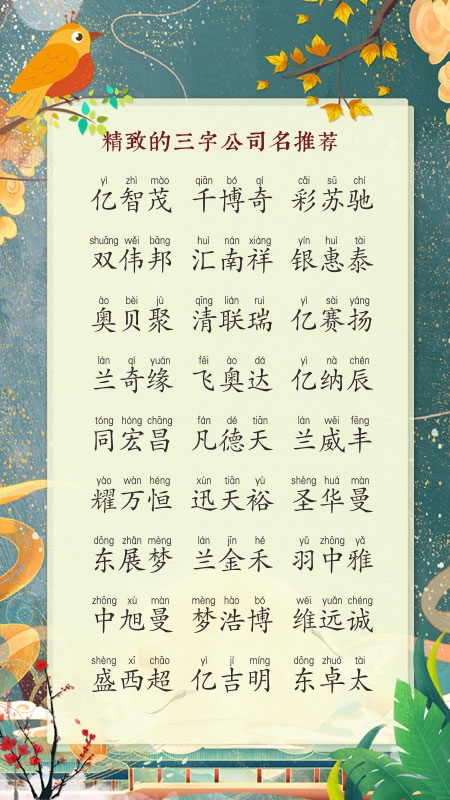 精致的三字公司名推荐
yì zhì mào qiān bó qí cǎi sū chí
亿智茂 千博奇 彩苏驰
shuāng wěi bāng huì nán xiáng yín huì tài
双伟邦 汇南祥 银惠泰
ào bèi jù qīng lián ruì yì sài yáng
奥贝聚 清联瑞 亿赛扬
lán qí yuán fēi ào dá yì nà chén
兰奇缘 飞奥达 亿纳辰
tóng hóng chāng fán dé tiān lán wēi fēng
同宏昌 凡德天 兰威丰
yào wàn héng xùn tiān yù shèng huá màn
耀万恒 迅天裕 圣华曼
dōng zhǎn mèng lán jīn hé yǔ zhōng yǎ
东展梦 兰金禾 羽中雅
zhōng xù màn mèng hào bó wéi yuǎn chéng
中旭曼 梦浩博 维远诚
shèng xī chāo yì jí míng dōng zhuó tài
盛西超 亿吉明 东卓太